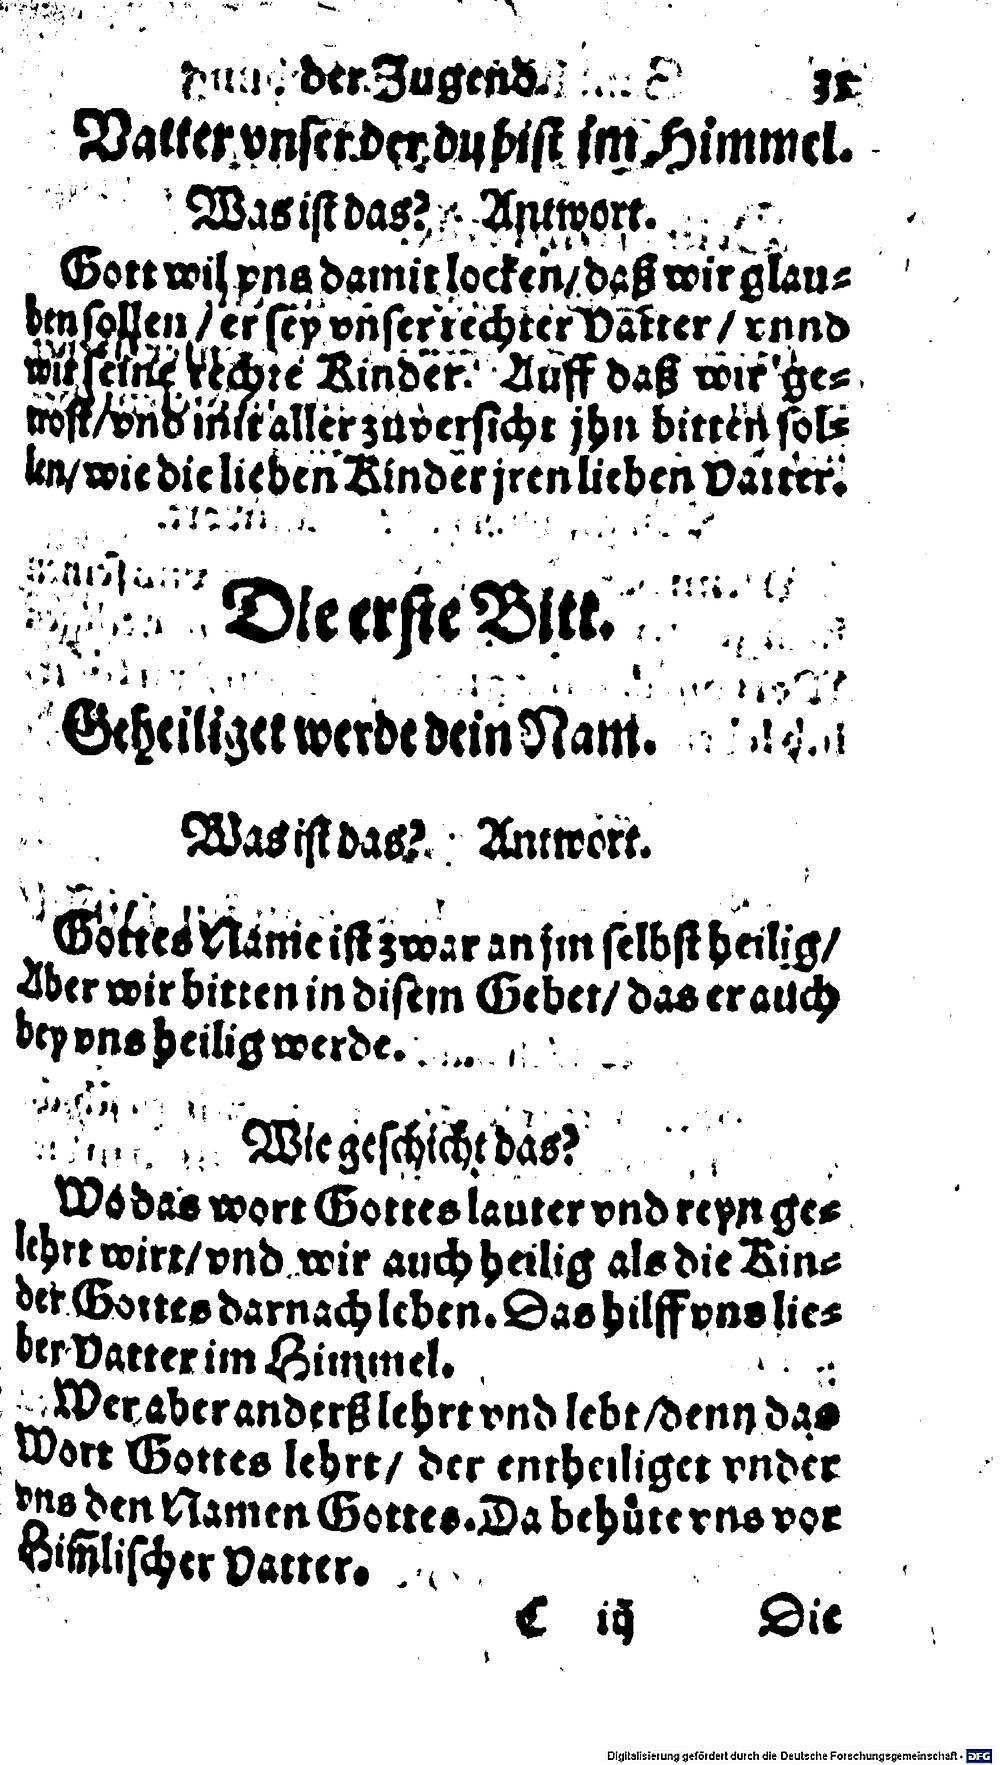 der Jugend. 31
Vatter vnser der du bist im Himmel.
Was ist das? Antwort.
Gott wil vns damit locken/ daß wir glau⸗
ben sollen / er sey vnser rechter Vatter / vnnd
wir seine rechte Kinder. Auff daß wir ge⸗
trost/ vnd mit aller zuversicht jhn bitten sol⸗
len/ wie die lieben Kinder jren lieben Vatter.
Die erste Bitt.
Geheiliget werde dein Nam.
Was ist das? Antwort.
Gottes Name ist zwar an jm selbst heilig/
Aber wir bitten in disem Gebet/ das er auch
bey vns heilig werde.
Wie geschicht das?
Wo das wort Gottes lauter vnd reyn ge⸗
lehrt wirt/ vnd wir auch heilig als die Kin⸗
der Gottes darnach leben. Das hilff vns lie⸗
ber Vatter im Himmel.
Wer aber anderß lehrt vnd lebt/ denn das
Wort Gottes lehrt/ der entheiliget vnder
vns den Namen Gottes. Da behuͤte vns vor
Him̃lischer Vatter.
C iij Die
Digitalisierung gefördert durch die Deutsche Forschungsgemeinschaft - DFG